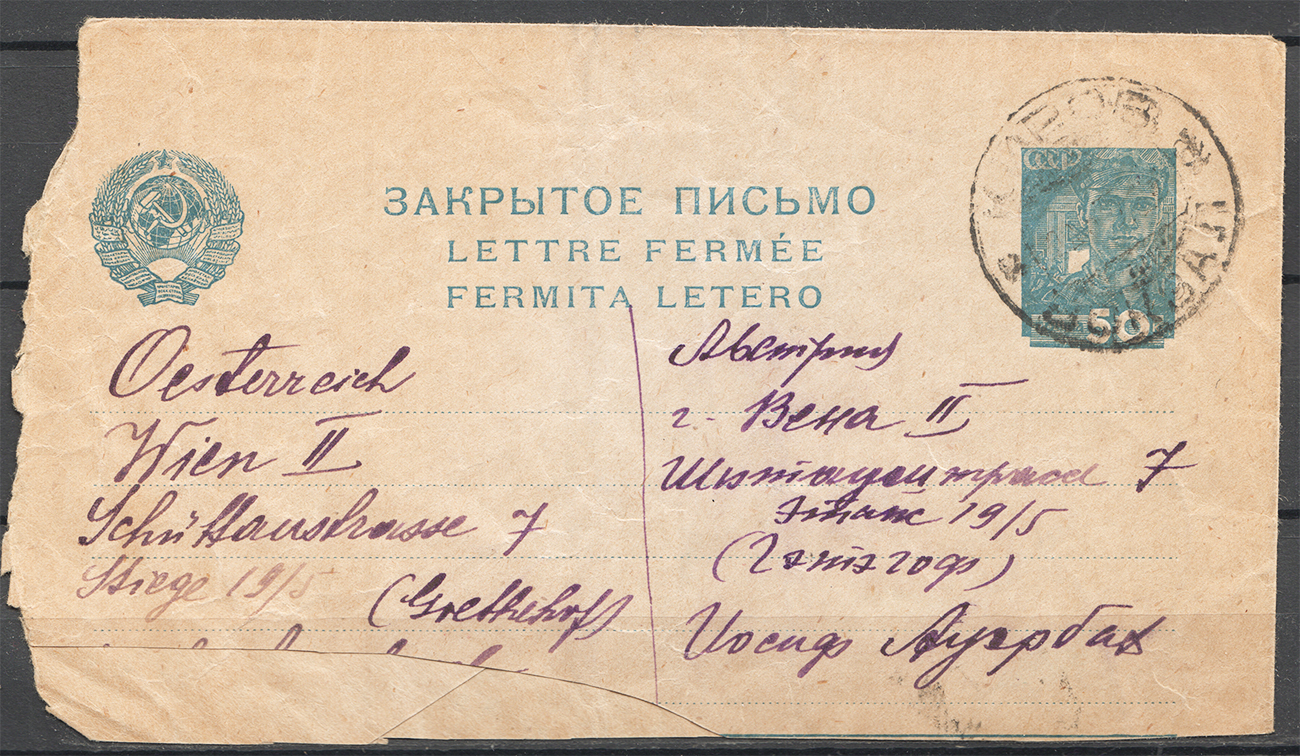 ЗАКРЫТОЕ ПИСЬМО
LETTRE FERMÉE
FERMITA LETERO
СССР
50
КИРОВ
ВОКЗАЛ
Oesterreich
Wien II
Schüttaustrasse 7
Stiege 19/5
(Goethehof)
Австрия
г. Вена II
Шитауштрасе 7
Этаж 19/5
(Гэтэгоф)
Иосиф Ауэрбах